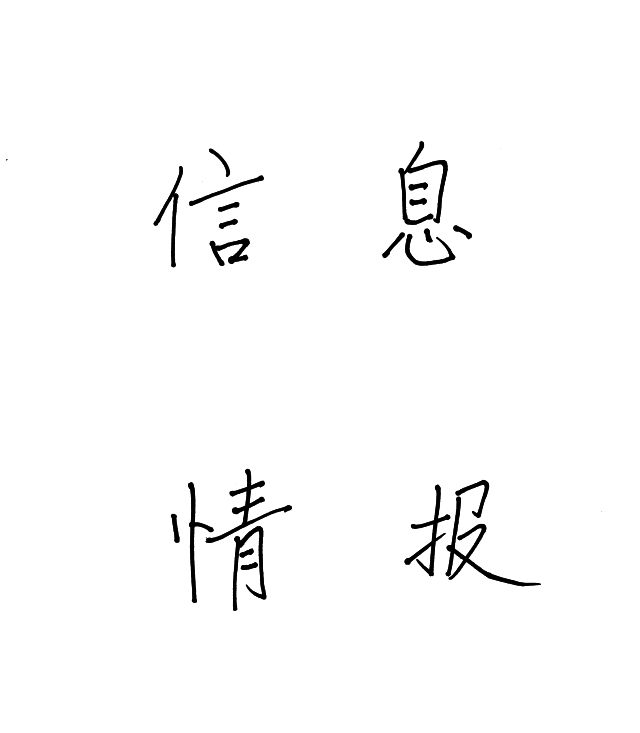 信息
情报